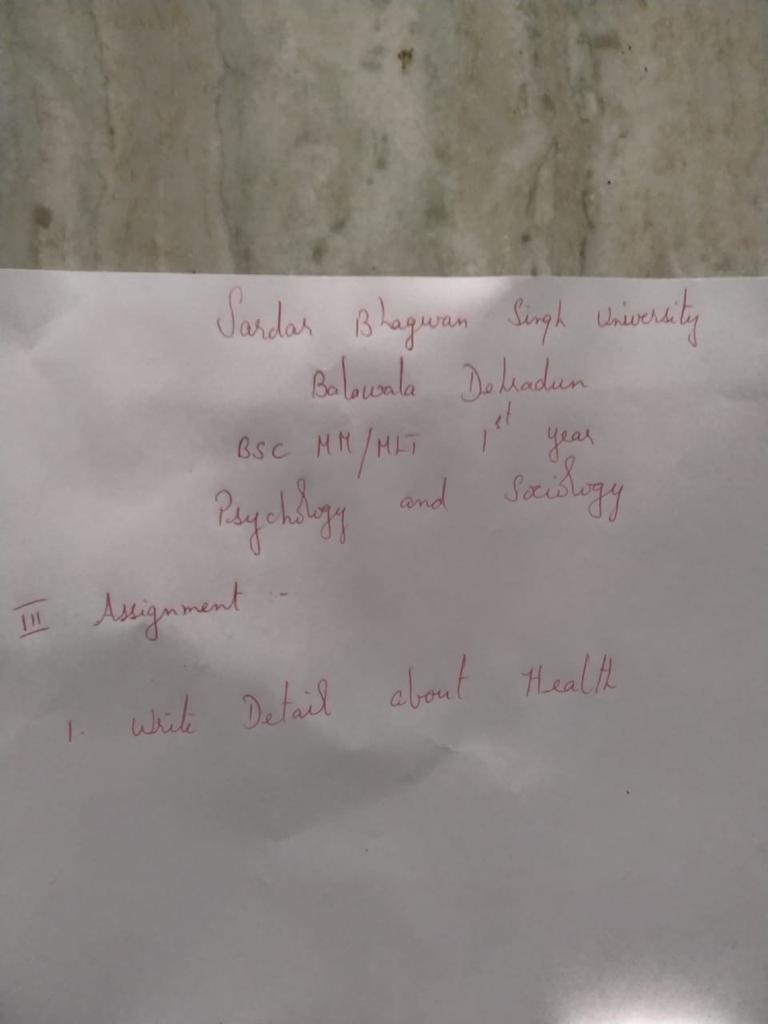 Sardar Bhagwan Singh University
Balawala Dehradun
BSC MM/MLT 1st year
Psychology and Sociology
III Assignment :-
1. Write Detail about Health